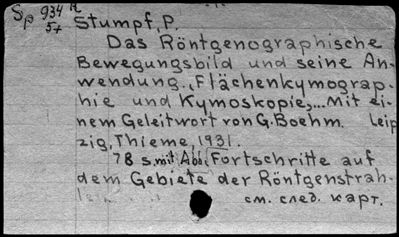 Sp 934
57
Stumpf, P.
Das Röntgenographische
Bewegungsbild und seine An-
wendung., Flächenkymograp-
hie und Kymoskopie,... Mit ei-
nem Geleitwort von G. Boehm. Leip-
zig, Thieme, 1931.
78 s. mit Abb. Fortschritte auf
dem Gebiete der Röntgenstrah-
см. след. карт.